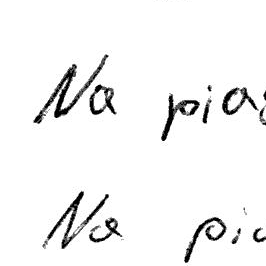 Na pia
Na pic